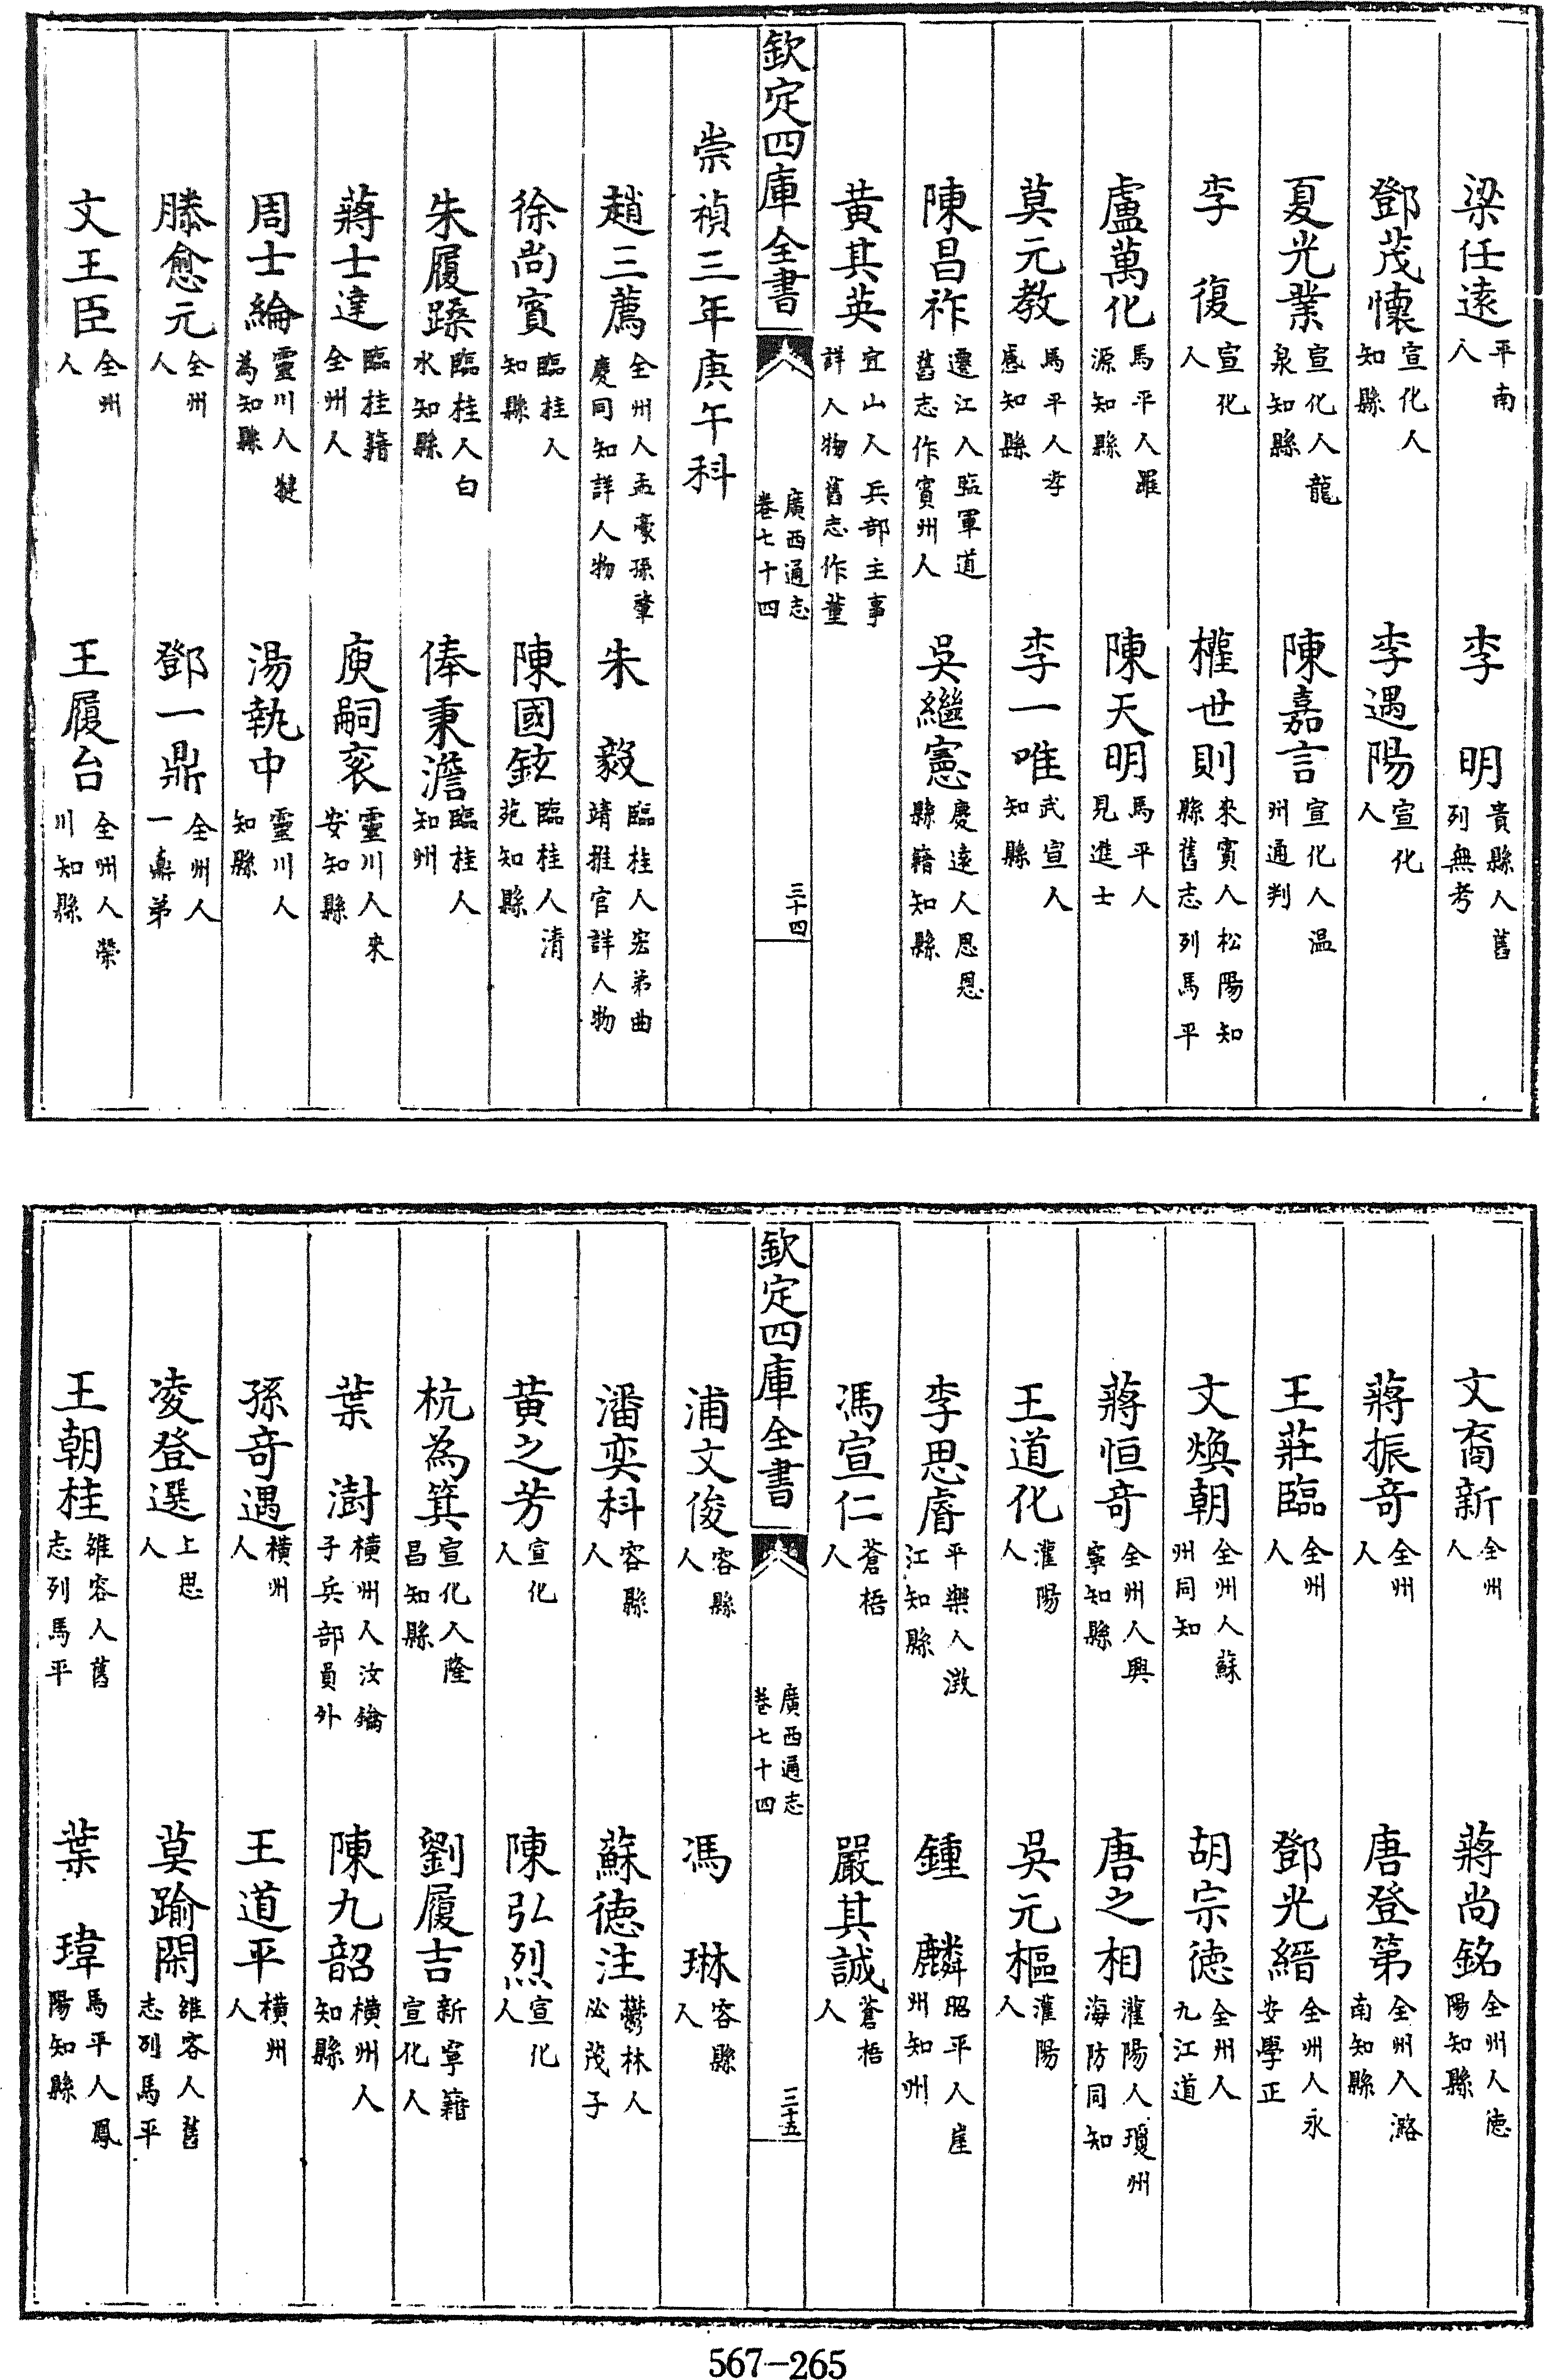 梁任遠平南人　李明貴縣人舊列無考
鄧茂懷宣化人知縣　李遇陽宣化人
夏光業宣化人龍泉知縣　陳嘉言宣化人温州通判
李復宣化人　權世則來賓人松陽知縣舊志列馬平
盧萬化馬平人羅源知縣　陳天明馬平人見進士
莫元教馬平人孝感知縣　李一唯武宣人知縣
陳昌祚遷江人臨軍道舊志作賓州人　吳繼憲慶遠人思恩縣籍知縣
黄其英宜山人兵部主事詳人物舊志作董
欽定四庫全書　廣西通志卷七十四　三十四
崇禎三年庚午科
趙三薦全州人孟豪孫肇慶同知詳人物　朱毅臨桂人宏弟曲靖推官詳人物
徐尚賓臨桂人知縣　陳國鉉臨桂人清苑知縣
朱履䠂臨桂人白水知縣　俸秉澹臨桂人知州
蔣士達臨桂籍全州人　庾嗣衮靈川人來安知縣
周士綸靈川人犍為知縣　湯執中靈川人知縣
滕愈元全州人　鄧一鼎全州人一鼒弟
文王臣全州人　王履台全州人榮川知縣
文裔新全州人　蔣尚銘全州人徳陽知縣
蔣振竒全州人　唐登第全州人潞南知縣
王莊臨全州人　鄧光縉全州人永安學正
文煥朝全州人蘇州同知　胡宗徳全州人九江道
蔣恒竒全州人興寧知縣　唐之相灌陽人瓊州海防同知
王道化灌陽人　吳元樞灌陽人
李思睿平樂人澂江知縣　鍾麟昭平人崖州知州
馮宣仁蒼梧人　嚴其誠蒼梧人
欽定四庫全書　廣西通志卷七十四　三十五
浦文俊容縣人　馮琳容縣人
潘奕科容縣人　蘇徳注鬱林人必茂子
黄之芳宣化人　陳弘烈宣化人
杭為箕宣化人隆昌知縣　劉履吉新寧籍宣化人
葉澍横州人汝鑰子兵部員外　陳九韶横州人知縣
孫竒遇横州人　王道平横州人
凌登選上思人　莫踰閑雒容人舊志列馬平
王朝桂雒容人舊志列馬平　葉瑋馬平人鳳陽知縣
567-265